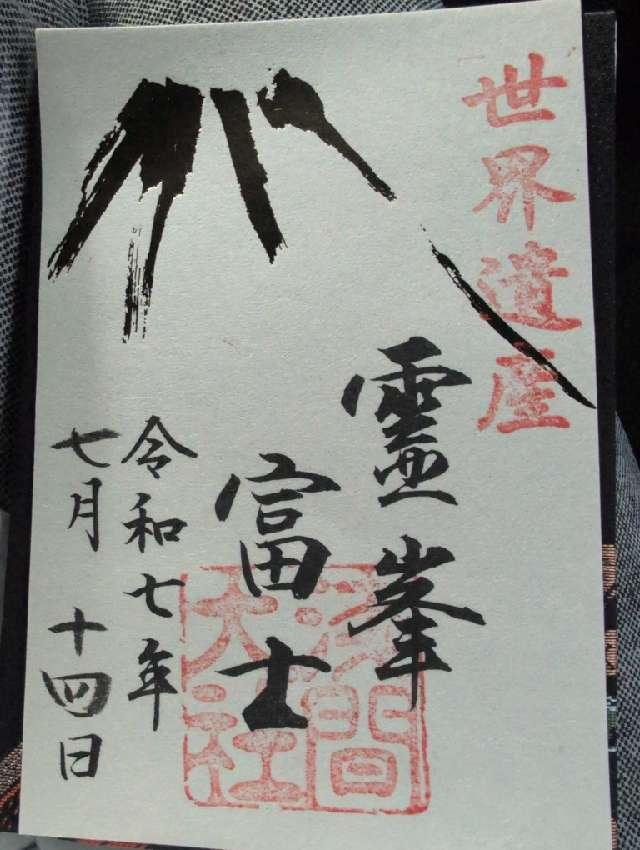 世界遺産
靈峯
富士
浅間
大社
令和七年
七月 十四日